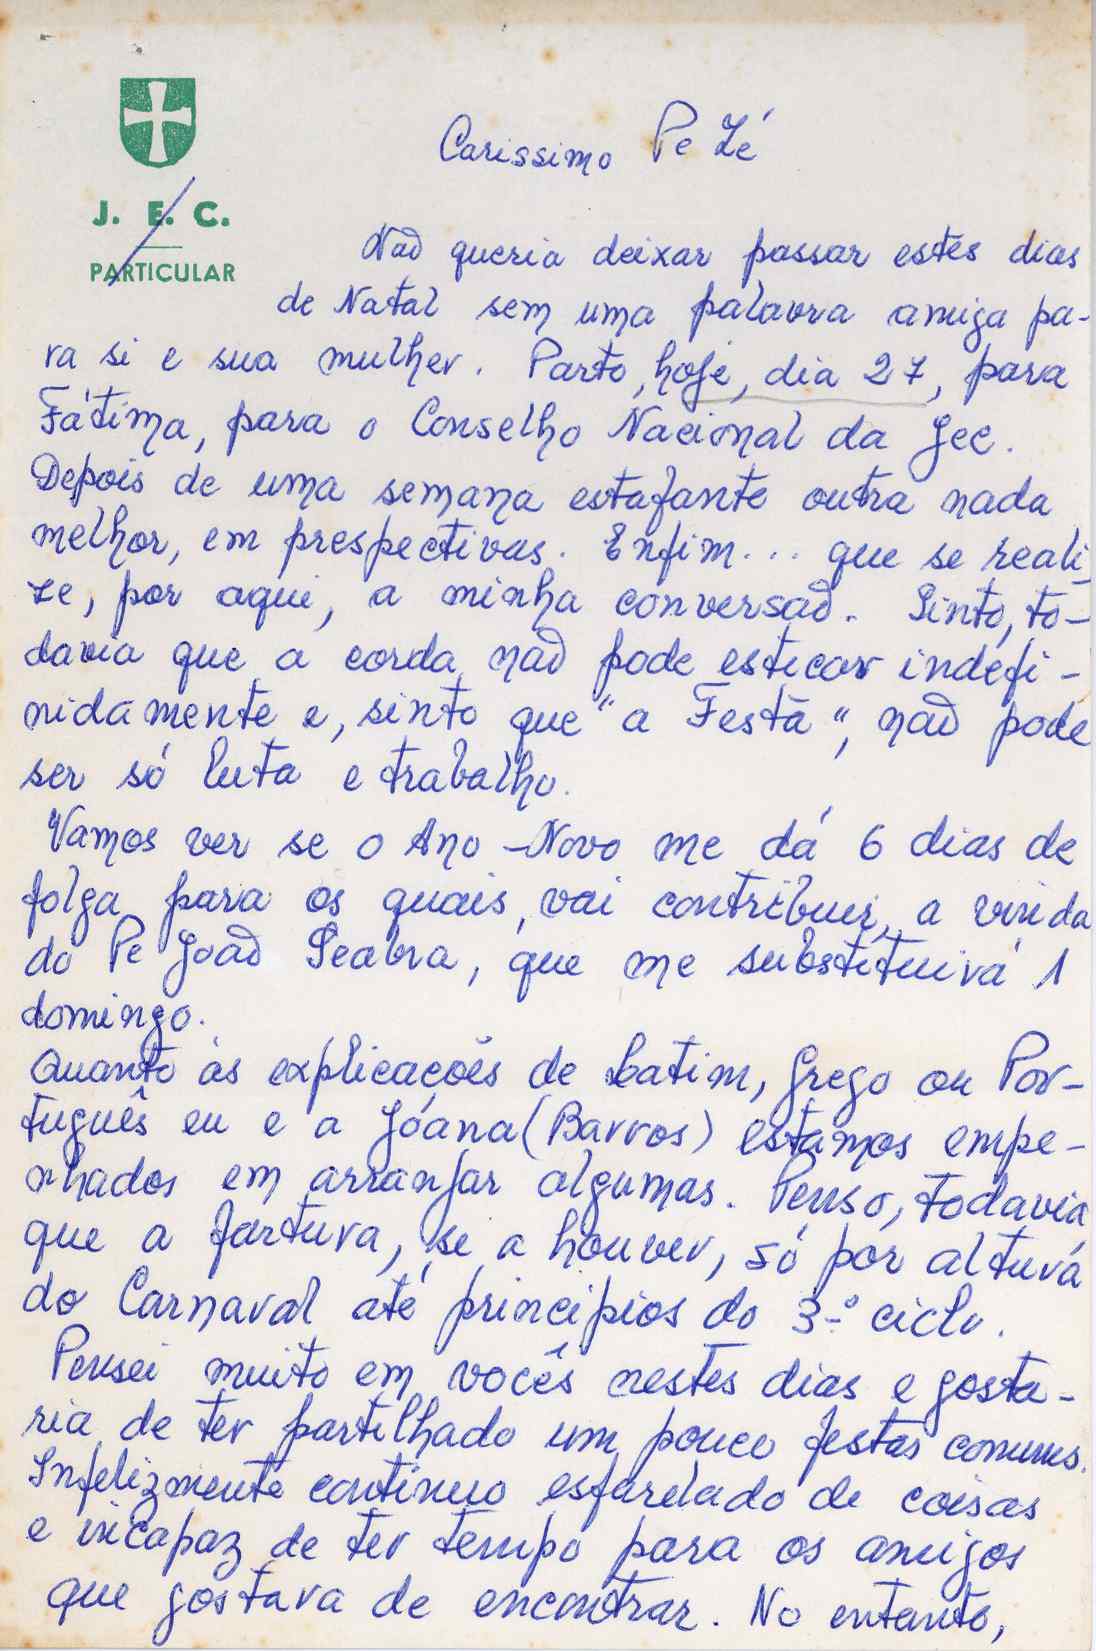 J. E. C.
PARTICULAR
Carissimo Pe Zé
Não queria deixar passar estes dias
de Natal sem uma palavra amiga pa-
ra si e sua mulher. Parto, hoje, dia 27, para
Fátima, para o Conselho Nacional da Jec.
Depois de uma semana estafante outra nada
melhor, em prespectivas. Enfim... que se reali-
ze, por aqui, a minha conversão. Sinto, to-
davia que a corda não pode esticar indefi-
nidamente e, sinto que "a Festa", não pode
ser só luta e trabalho.
Vamos ver se o Ano-Novo me dá 6 dias de
folga para os quais, vai contribuir, a vinda
do Pe João Seabra, que me substituirá 1
domingo.
Quanto às explicações de Latim, Grego ou Por-
tuguês eu e a Jóana (Barros) estamos empe-
nhados em arranjar algumas. Penso, todavia
que a fartura, se a houver, só por altura
do Carnaval até principios do 3.º ciclo.
Pensei muito em vocês nestes dias e gosta-
ria de ter partilhado um pouco festas comuns.
Infelizmente continuo esfarelado de coisas
e incapaz de ter tempo para os amigos
que gostava de encontrar. No entanto,